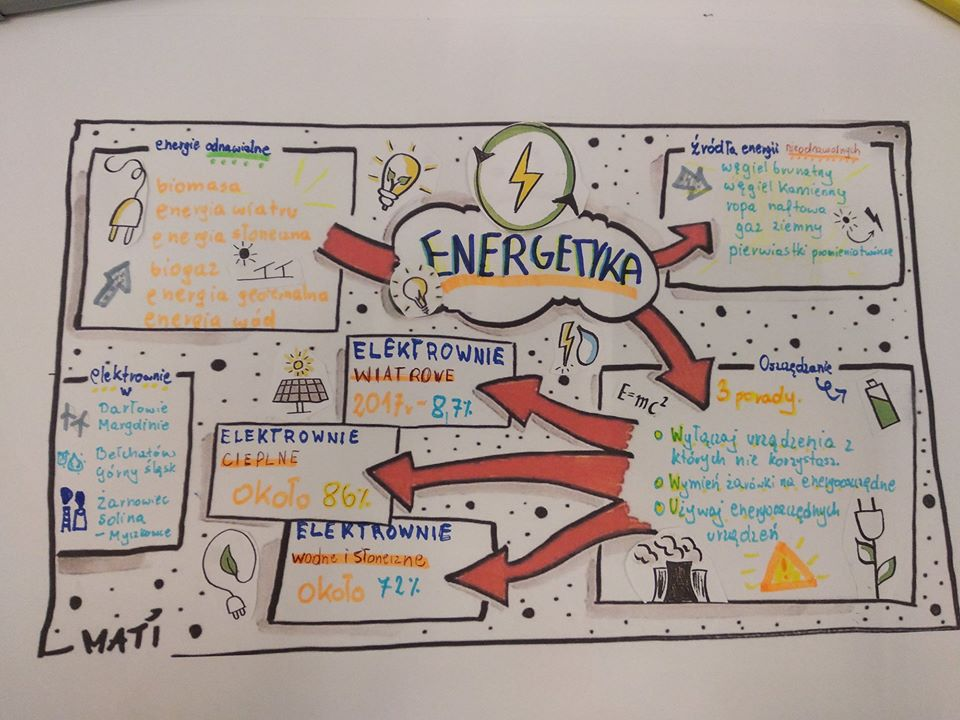 energie odnawialne
biomasa
energia wiatru
energia słoneczna
biogaz
energia geotermalna
energia wód
ENERGETYKA
źródła energii nieodnawialnych
węgiel brunatny
węgiel kamienny
ropa naftowa
gaz ziemny
pierwiastki promieniotwórcze
elektrownie
w
Darłowie
Margdinie
Bełchatów
górny śląsk
Żarnowiec
Solina
- Myczkowce
ELEKTROWNIE
WIATROWE
2017r - 8,7%
ELEKTROWNIE
CIEPLNE
OKOŁO 86%
ELEKTROWNIE
wodne i słoneczne
OKOŁO 72%
Oszczędzanie
E=mc²
3 porady.
Wyłączaj urządzenia z
których nie korzystasz.
Wymień żarówki na energooszczędne
Używaj energooszczędnych
urządzeń
MATI